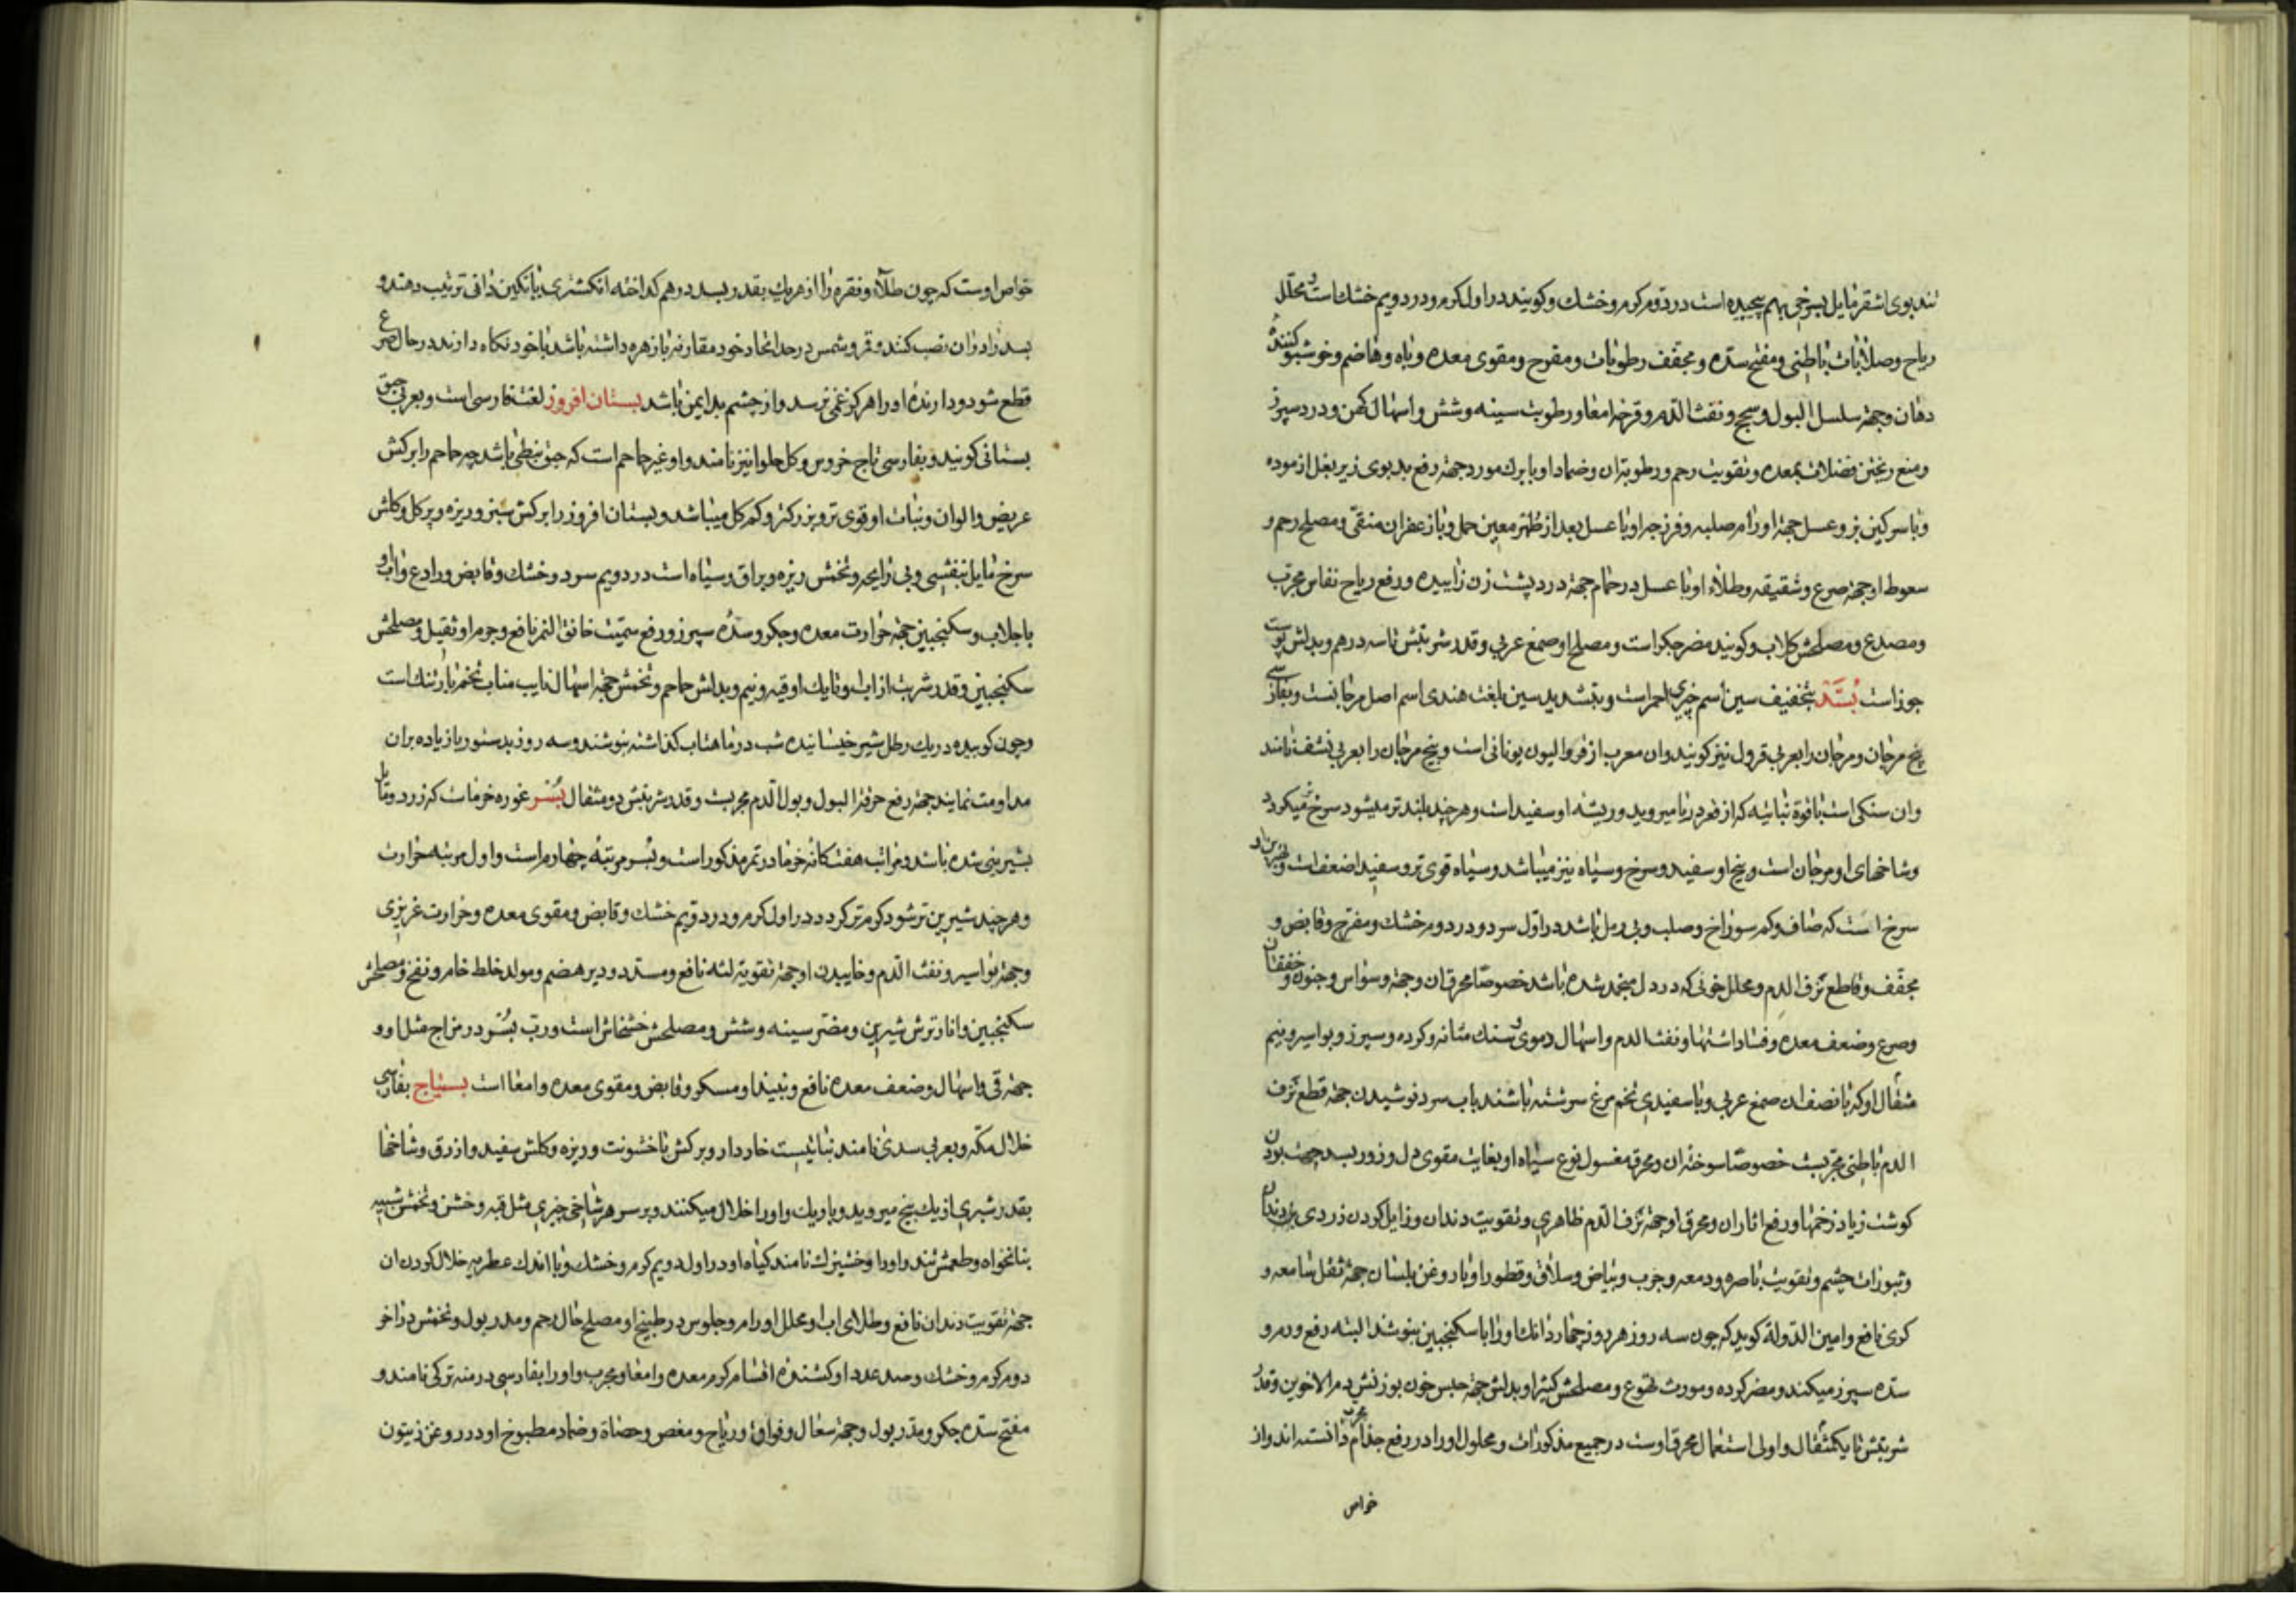 تند بوی اشقر مایل بسرخی بهم پیچیده است در دوم کرم و خشك و کویند در اول کرم و در دویم خشك است و محلل
ریاح و صلابات باطنی و مفتح سده و مجفف رطوبات و مفرح و مقوی معده و باه و هاضم و خوشبو کنندهٔ
دهان و جهة سلسل البول و سحج و نفث الدم و قرحه امعا و رطوبت سینه و شش و اسهال کهن و درد سپرز
و منع ریختن فضلات بمعده و تقویت رحم و رطوبت ان و ضماد او با برك مورد جهة رفع بد بوی زیر بغل ازموده
و با سرکین بز و عسل جهة اورام صلبه و فرزجه او با عسل بعد از طهر معین حمل و با زعفران منقی و مصلح رحم و
سعوط او جهة صرع و شقیقه و طلاء او با عسل در حمام جهة درد پشت زن زاییده و رفع ریاح نفاس مجرب
و مصدع و مصلحش کلاب و کویند مضر جکر است و مصلح او صمغ عربی و قدر شربتش تا سه درهم و بدلش پوست
جوز است بُسَّد بتخفیف سین اسم خیری احمر است و بتشدید سین بلغت هندی اسم اصل مرجانست و بفارسی
بیخ مرجان و مرجان را بعربی قرول نیز کویند و ان معرب از قروالیون یونانی است و بیخ مرجان را بعربی نشف نامند
و ان سنکی است با قوة نباتیه که از قعر دریا میروید و ریشه او سفید است و هر چند بلند تر میشود سرخ میکردد
و شاخهای او مرجان است و بیخ او سفید و سرخ و سیاه نیز میباشد و سیاه قوی تر و سفید اضعف است و بهترین او
سرخ است که صاف و کم سوراخ و صلب و بی رمل باشد در اول سرد و در دوم خشك و مفرح و قابض و
مجفف و قاطع نزف الدم و محلل خونی که در دل منجمد شده باشد خصوصا محرق ان و جهة وسواس و جنون و خفقان
و صرع و ضعف معده و فساد اشتها و نفث الدم و اسهال دموی و سنك مثانه و کرده و سپرز و بواسیر و نیم
مثقال او که با نصف ان صمغ عربی و با سفیدی تخم مرغ سرشته باشند باب سرد نوشیدن جهة قطع نزف
الدم باطنی مجربست خصوصا سوخته ان و محرق مغسول نوع سیاه او بغایت مقوی دل و زرور بسد جهة بردن
کوشت زیاد زخمها و رفع اثار ان و محرق او جهة نزف الدم ظاهری و تقویت دندان و زایل کردن زردی بن دندان
و بثورات چشم و تقویت باصره و دمعه و جرب و بیاض و سلاق و قطور او با روغن بلسان جهة ثقل سامعه و
کری نافع و امین الدولة کوید که چون سه روز هر روز چهار دانك او را با سکنجبین بنوشند البته رفع ورم و
سده سپرز میکند و مضر کرده و مورث تهوع و مصلحش کتیرا و بدلش جهة حبس خون بوزنش دم الاخوین و قدر
شربتش تا یکمثقال و اولی استعمال محرق اوست در جمیع مذکورات و محلول او را در رفع جذام مجرب دانسته اند و از
خواص
خواص اوست که چون طلا و نقره را از هر یك بقدر بسد در هم کداخته انکشتری با نکین ذاتی ترتیب دهند و
بسد را در ان نصب کنند و قمر و شمس در حد اتحاد خود مقارنه با زهره داشته باشد با خود نکاه دارند در حال صرع
قطع شود و دارنده او را هرکز غمی نرسد و از چشم بد ایمن باشد بستان افروز لغت فارسی است و بعربی حبق
بستانی کویند و بفارسی تاج خروس و کل حلوا نیز نامند و او غیر حاحم است که حبق نبطی باشد چه حاحم را برکش
عریض و الوان و نبات او قوی تر و بزرکتر و کم کل میباشد و بستان افروز را برکش سبز و ریزه و پر کل و کلش
سرخ مایل ببنفشی و بی رایحه و تخمش ریزه و براق و سیاه است در دویم سرد و خشك و قابض و رادع و اب او
با جلاب و سکنجبین جهة حرارت معده و جکر و سدهٔ سپرز و رفع سمیت خانق النمر نافع و جرم او ثقیل و مصلحش
سکنجبین و قدر شربت از اب او تا یك اوقیه و نیم و بدلش حاحم و تخمش جهة اسهال نایب مناب تخم بارتنك است
و چون کوبیده در یك رطل شیر خیسانیده شب در ماهتاب کذاشته بنوشند و سه روز بدستور یا زیاده بران
مداومت نمایند جهة رفع حرقة البول و بول الدم مجربست و قدر شربتش دو مثقال بُسْر غوره خرماست که زرد و مایل
بشیرینی شده باشد و مراتب هفتکانه خرما در تمر مذکور است و بسر مرتبه چهارم است و اول مرتبه حرارت
و هر چند شیرین تر شود کرم تر کردد در اول کرم و در دویم خشك و قابض و مقوی معده و حرارت غریزی
و جهة بواسیر و نفث الدم و خاییدن او جهة تقویة لثه نافع و مسدد و دیر هضم و مولد خلط خام و نفخ و مصلحش
سکنجبین و انار ترش شیرین و مضر سینه و شش و مصلحش خشخاش است و رب بسر در مزاج مثل او و
جهة قی و اسهال و ضعف معده نافع و نبیذ او مسکر و قابض و مقوی معده و امعا است بستیاج بفارسی
خلال مکه و بعربی سدی نامند نباتیست خاردار و برکش با خشونت و ریزه و کلش سفید و ازرق و شاخها
بقدر شبری از یك بیخ میروید و باریك و او را خلال میکنند و بر سر هر شاخی چیزی مثل قبه و خشن و تخمش شبیه
بنانخواه و طعمش تند و او را وخشیزك نامند کیاه او در اول دویم کرم و خشك و با اندك عطریه خلال کردن ان
جهة تقویت دندان نافع و طلای اب او محلل اورام و جلوس در طبیخ او مصلح حال رحم و مدر بول و تخمش در اخر
دوم کرم و خشك و صد عدد او کشندهٔ اقسام کرم معده و امعا و مجرب و او را بفارسی درمنه ترکی نامند و
مفتح سده جکر و مدر بول و جهة سعال و فواق و ریاح و مغص و حصاة و ضماد مطبوخ او در روغن زیتون